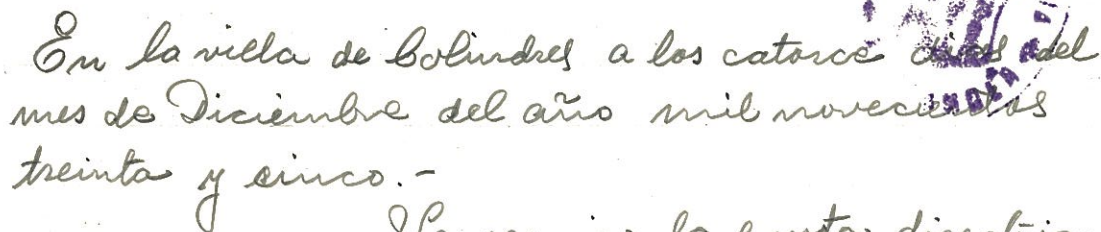 En la villa de Colindres a los catorce dias del
mes de Diciembre del año mil novecientos
treinta y cinco.-
la junta directiva